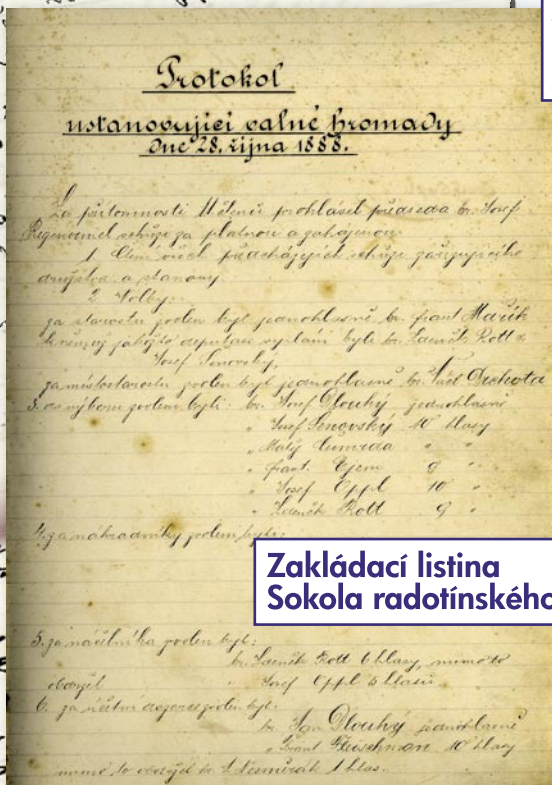 Protokol
ustanovující valné hromady
dne 28. října 1888.
Za přítomnosti 11 členů prohlásil předseda br. Josef
schůze za platnou a zahájenou
1. Čtení všech předcházejících schůze zařizujícího
družstva a stanovy.
2. Volby:
za starostu zvolen byl jednohlasně br. frant. Mařík
deputace vysláni byli br. Zdeněk Rott a
Josef Senovský,
za místostarostu zvolen byl jednohlasně br.
3. do výboru zvoleni byli: br. Josef Dlouhý jednohlasně
" Josef Senovský 10 hlasy
" Matěj " "
" frant. 9 "
" Josef Oppl 10 "
" Zdeněk Rott 9 "
4. za náhradníky zvoleni byli:
Zakládací listina
Sokola radotínského
5. za náčelníka zvolen byl:
br. Zdeněk Rott 6 hlasy, mimo to
obdržel " Josef Oppl 5 hlasů
6. za zvolen byl:
br. Jan Dlouhý jednohlasně
" Frant. Fleischman 10 hlasy
mimo to obdržel br. 1 hlas.